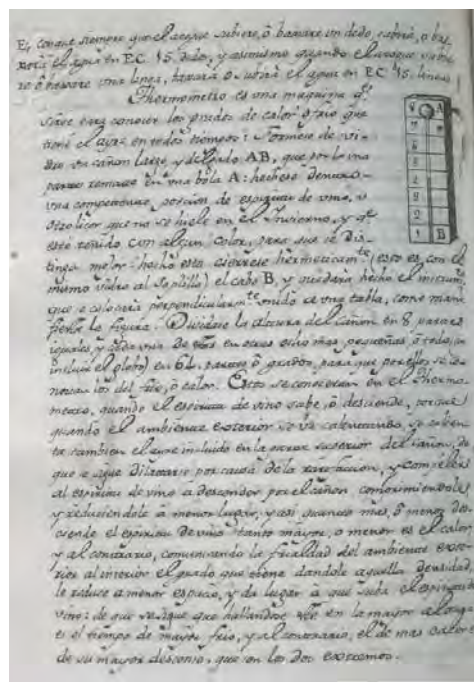 conque siempre que el azogue subiere, ó baxare un dedo, subirá, ó ba-
xará el agua en EC 15 dedos, y asimismo quando el azogue subie-
re ó baxare una linea, baxará ó subirá el agua en EC 15 lineas
Thermometro es una maquina qe.
sirve para conocer los grados de calor ó frio que
tiene el ayre en todos tiempos: Formese de vi-
drio un cañon largo, y delgado AB, que por la una
parte remate en una bola A: hechese dentro
una competente porcion de espiritu de vino, u
otro licor que no se hiele en el Invierno, y qe
esté teñido con algun color, para que se dis-
tinga mejor: hecho esto cierrese hermeticamte. (esto es, con el
mismo vidrio al Soplillo) el cabo B, y quedará hecho el instrumto
que se colocará perpendicularmte. unido a una tabla, como mani
fiesta la figura. Dividase la altura del cañon en 8 partes
iguales, y cada una de estas en otras ocho mas pequeñas, ó todo, in
incluir el globo) en 64 partes ó grados, para que por ellos se co-
nozcan los del frio, ó calor. Estos se conoceran en el Thermo
metro, quando el espiritu de vino sube, ó desciende, porque
quando el ambiente exterior se va calentando, se calien
ta tambien el ayre incluido en la parte superior del cañon, de
que se sigue dilatarse por causa de la rarefaccion, y compeler
al espiritu de vino a descender por el cañon comprimiendole
y reduciendole a menor lugar; y asi quanto mas, ó menos des-
ciende el espiritu de vino tanto mayor, o menor es el calor,
y al contrario, comunicando la frialdad del ambiente exte-
rior al interior el grado que tiene dandole aquella densidad,
le reduce a menor espacio, y da lugar a que suba el espiritu
vino: de que se sigue que hallandose este en la mayor altura
es el tiempo de mayor frio, y al contrario, el de mas calor
de su mayor descenso, que son los dos extremos.
8 A
7
6
5
4
3
2
1 B